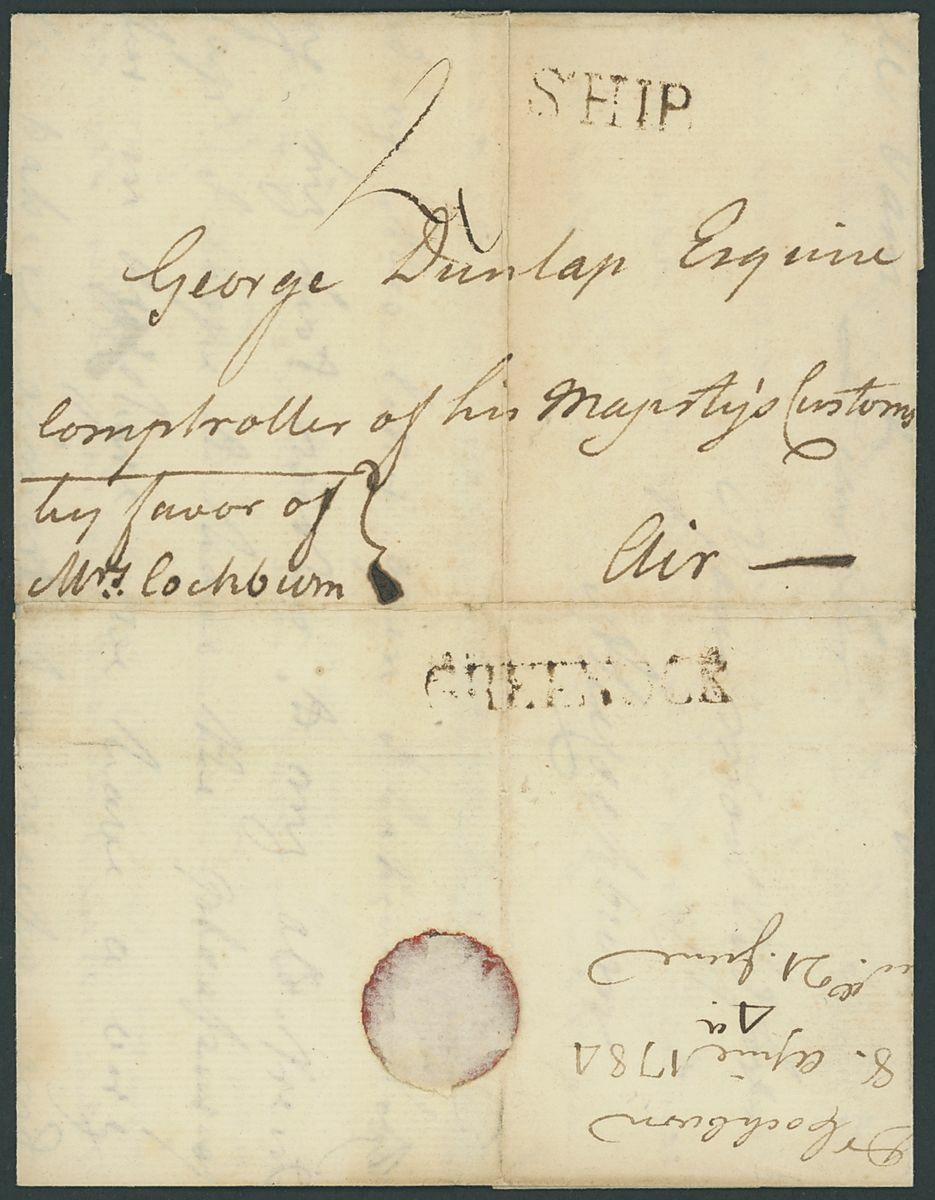 SHIP
George Dunlap Esquire
Comptroller of his Majesty's Customs
by favor of
Mrs. Cochburn
Air —
GREENOCK
Dr Cochburn
8. April 1784
21. June